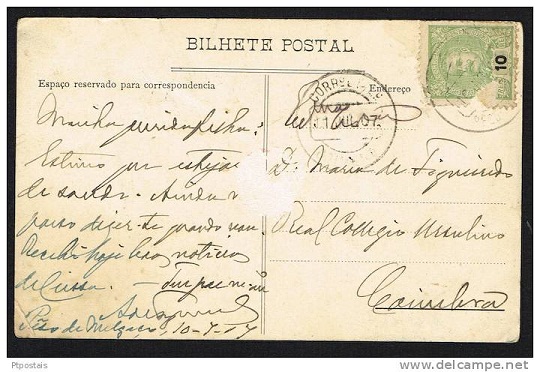 BILHETE POSTAL
Espaço reservado para correspondencia
Endereço
10
CORREIO
11 JUL 07
Minha querida filha:
Estimo que estejas
de saude. Ainda n
posso dizer-te quando vou.
Recebi hoje boas noticias
de Lissa.
Peso de Melgaço, 10-7-07
D. Maria de Figueiredo
Real Collegio Ursulino
Coimbra
Ptpostais
delcampe.net